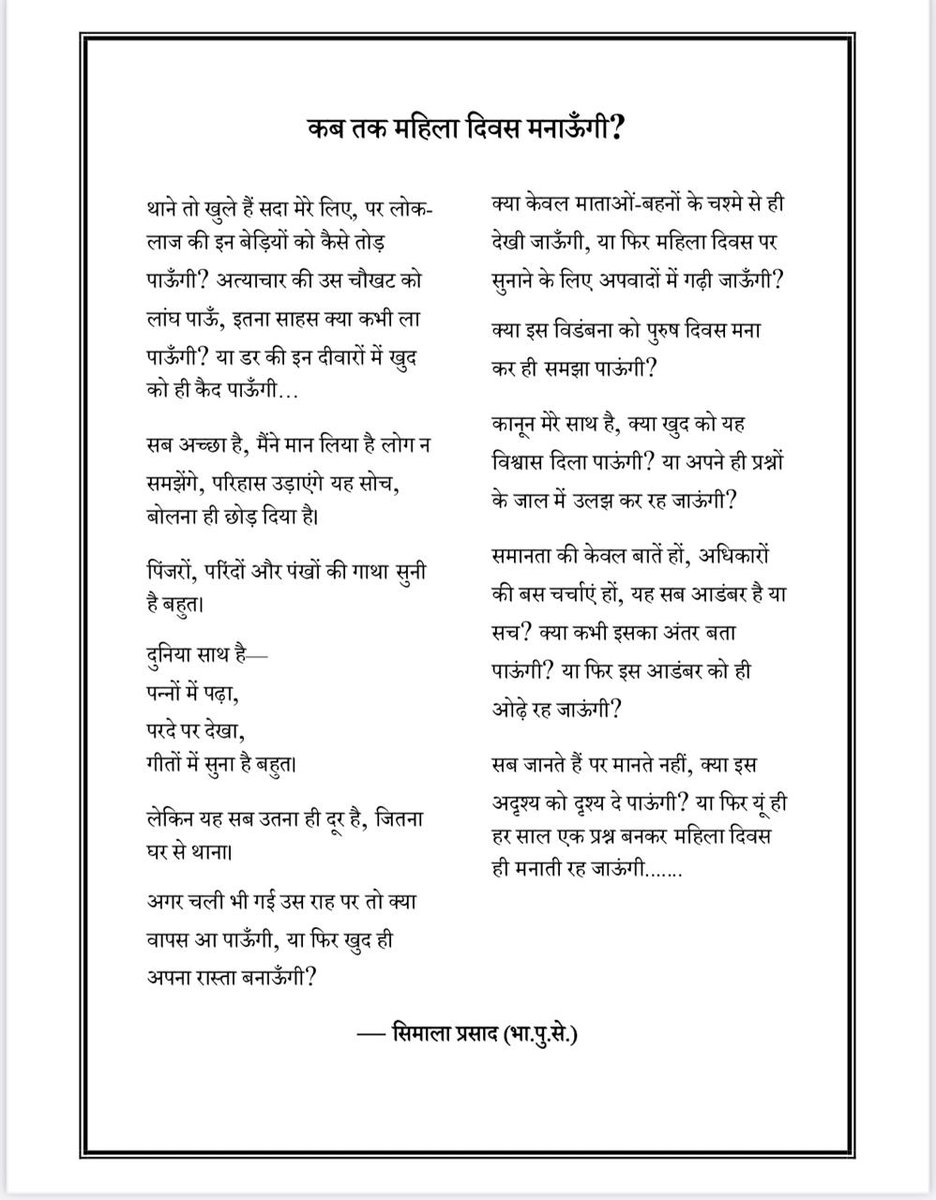 कब तक महिला दिवस मनाऊँगी?
थाने तो खुले हैं सदा मेरे लिए, पर लोक-
लाज की इन बेड़ियों को कैसे तोड़
पाऊँगी? अत्याचार की उस चौखट को
लांघ पाऊँ, इतना साहस क्या कभी ला
पाऊँगी? या डर की इन दीवारों में खुद
को ही कैद पाऊँगी...
सब अच्छा है, मैंने मान लिया है लोग न
समझेंगे, परिहास उड़ाएंगे यह सोच,
बोलना ही छोड़ दिया है।
पिंजरों, परिंदों और पंखों की गाथा सुनी
है बहुत।
दुनिया साथ है—
पन्नों में पढ़ा,
परदे पर देखा,
गीतों में सुना है बहुत।
लेकिन यह सब उतना ही दूर है, जितना
घर से थाना।
अगर चली भी गई उस राह पर तो क्या
वापस आ पाऊँगी, या फिर खुद ही
अपना रास्ता बनाऊँगी?
क्या केवल माताओं-बहनों के चश्मे से ही
देखी जाऊँगी, या फिर महिला दिवस पर
सुनाने के लिए अपवादों में गढ़ी जाऊँगी?
क्या इस विडंबना को पुरुष दिवस मना
कर ही समझा पाऊंगी?
कानून मेरे साथ है, क्या खुद को यह
विश्वास दिला पाऊंगी? या अपने ही प्रश्नों
के जाल में उलझ कर रह जाऊंगी?
समानता की केवल बातें हों, अधिकारों
की बस चर्चाएं हों, यह सब आडंबर है या
सच? क्या कभी इसका अंतर बता
पाऊंगी? या फिर इस आडंबर को ही
ओढ़े रह जाऊंगी?
सब जानते हैं पर मानते नहीं, क्या इस
अदृश्य को दृश्य दे पाऊंगी? या फिर यूं ही
हर साल एक प्रश्न बनकर महिला दिवस
ही मनाती रह जाऊंगी.......
— सिमाला प्रसाद (भा.पु.से.)